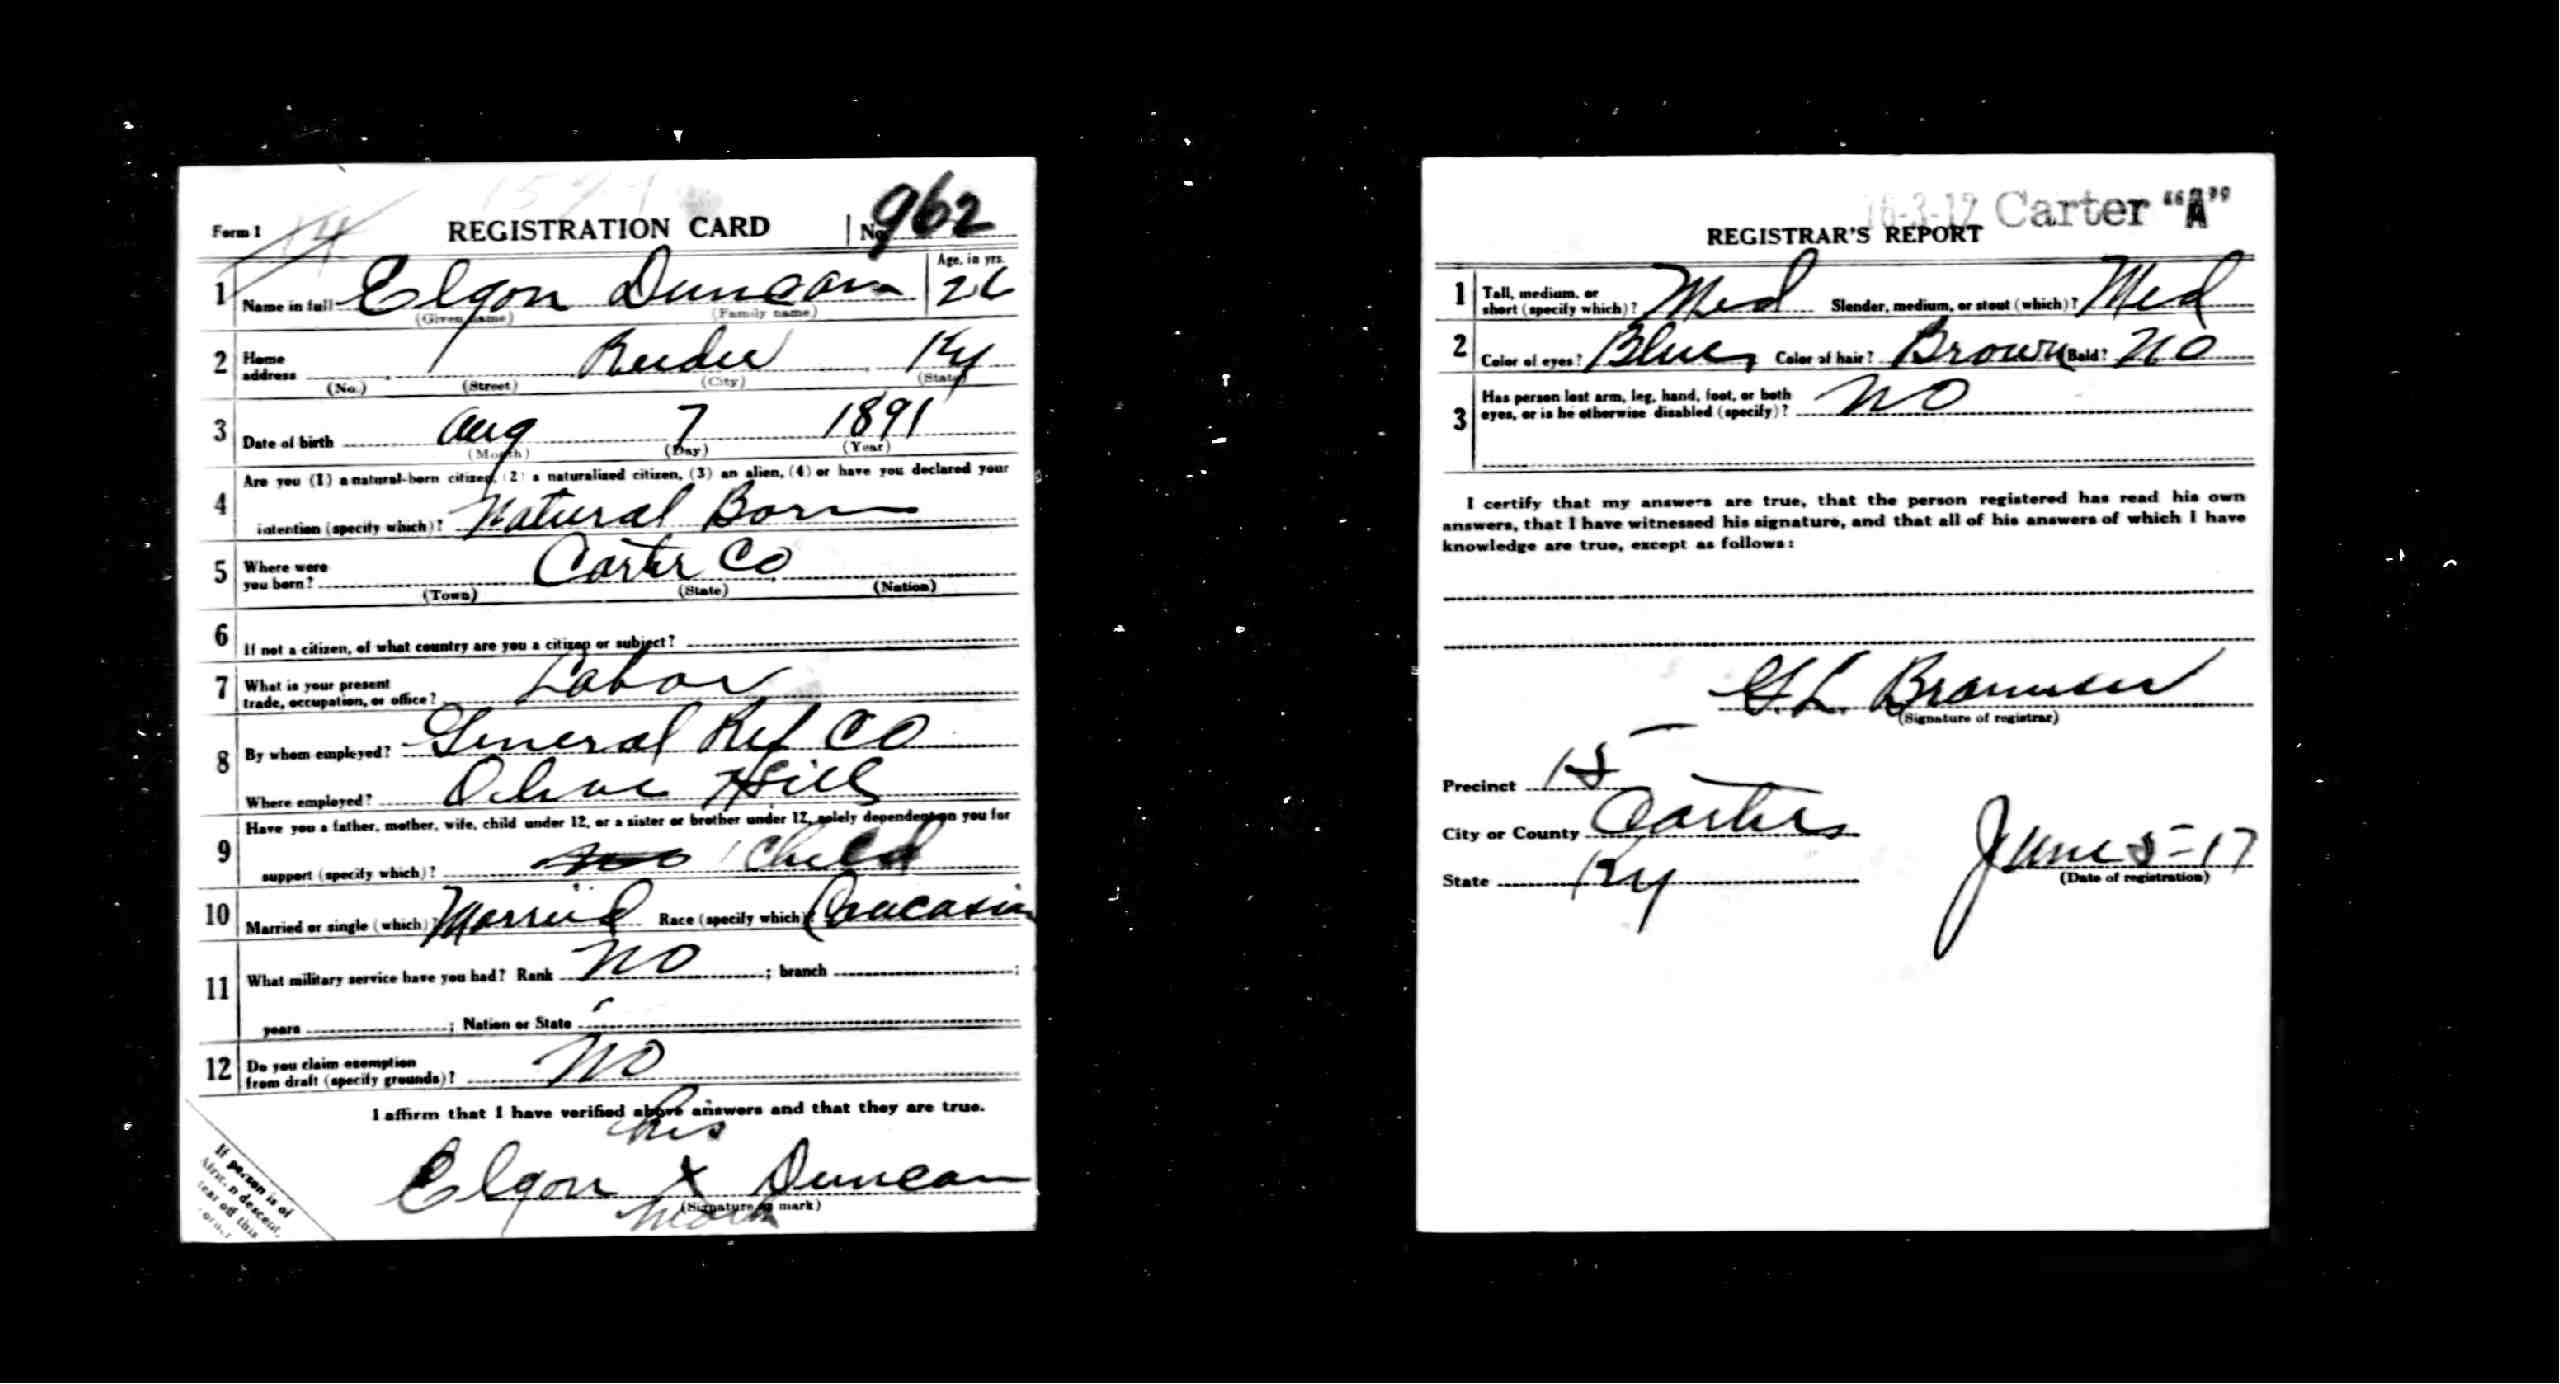 Form 1 REGISTRATION CARD No. 962
1 Name in full Elgon Duncan Age, in yrs. 26
(Given name) (Family name)
2 Home address Ky
(No.) (Street) (City) (State)
3 Date of birth Aug 7 1891
(Month) (Day) (Year)
Are you (1) a natural-born citizen, (2) a naturalized citizen, (3) an alien, (4) or have you declared your
4 intention (specify which)? Natural Born
5 Where were you born? Carter Co
(Town) (State) (Nation)
6 If not a citizen, of what country are you a citizen or subject?
7 What is your present trade, occupation, or office? Labor
8 By whom employed? General Ref Co
Where employed? Olive Hill
Have you a father, mother, wife, child under 12, or a sister or brother under 12, solely dependent on you for
9 support (specify which)? no 1 Child
10 Married or single (which)? Married Race (specify which)? Caucasin
11 What military service have you had? Rank NO ; branch ;
years ; Nation or State
12 Do you claim exemption from draft (specify grounds)? NO
I affirm that I have verified above answers and that they are true.
his
Elgon X Duncan
(Signature or mark)
mark
If person is of
African descent,
tear off this
corner
16-3-17 Carter "A"
REGISTRAR'S REPORT
1 Tall, medium, or short (specify which)? Med Slender, medium, or stout (which)? Med
2 Color of eyes? Blue Color of hair? Brown Bald? NO
3 Has person lost arm, leg, hand, foot, or both eyes, or is he otherwise disabled (specify)? NO
I certify that my answers are true, that the person registered has read his own
answers, that I have witnessed his signature, and that all of his answers of which I have
knowledge are true, except as follows:
G.L.
(Signature of registrar)
Precinct 15
City or County Carter
State Ky
June 5-17
(Date of registration)